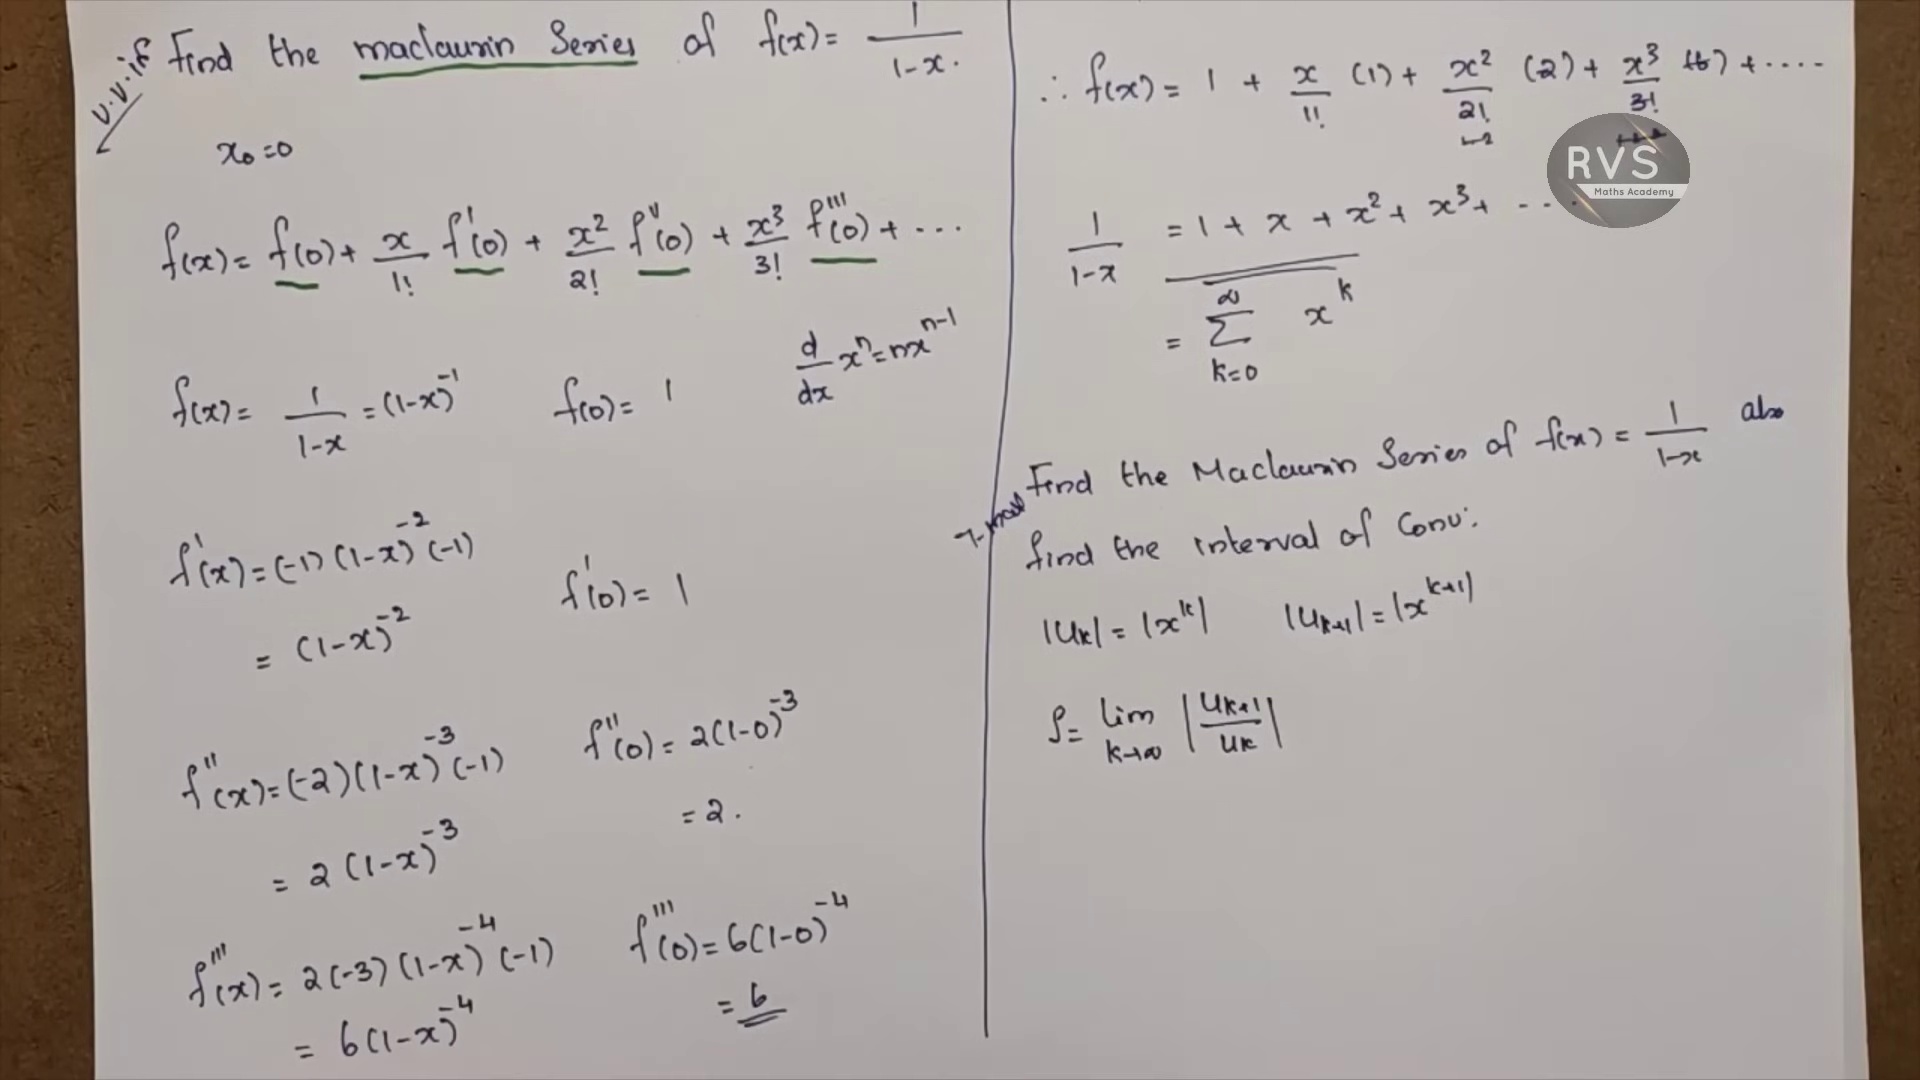 v.v.if Find the maclaurin Series of f(x) = 1/(1-x).
x₀=0
f(x) = f(0) + x/1! f'(0) + x²/2! f''(0) + x³/3! f'''(0) + ...
d/dx xⁿ = nxⁿ⁻¹
f(x) = 1/(1-x) = (1-x)⁻¹ f(0) = 1
f'(x) = (-1)(1-x)⁻²(-1)
f'(0) = 1
= (1-x)⁻²
f''(x) = (-2)(1-x)⁻³(-1) f''(0) = 2(1-0)⁻³
= 2(1-x)⁻³ = 2.
f'''(x) = 2(-3)(1-x)⁻⁴(-1) f'''(0) = 6(1-0)⁻⁴
= 6(1-x)⁻⁴ = 6
∴ f(x) = 1 + x/1! (1) + x²/2! (2) + x³/3! (6) + ....
RVS
Maths Academy
1/(1-x) = 1 + x + x² + x³ + ....
= ∑ₖ₌₀^∞ xᵏ
Find the Maclaurin Series of f(x) = 1/(1-x) also
find the interval of Conv:
|uₖ| = |xᵏ| |uₖ₊₁| = |xᵏ⁺¹|
ρ = lim k→∞ |uₖ₊₁/uₖ|